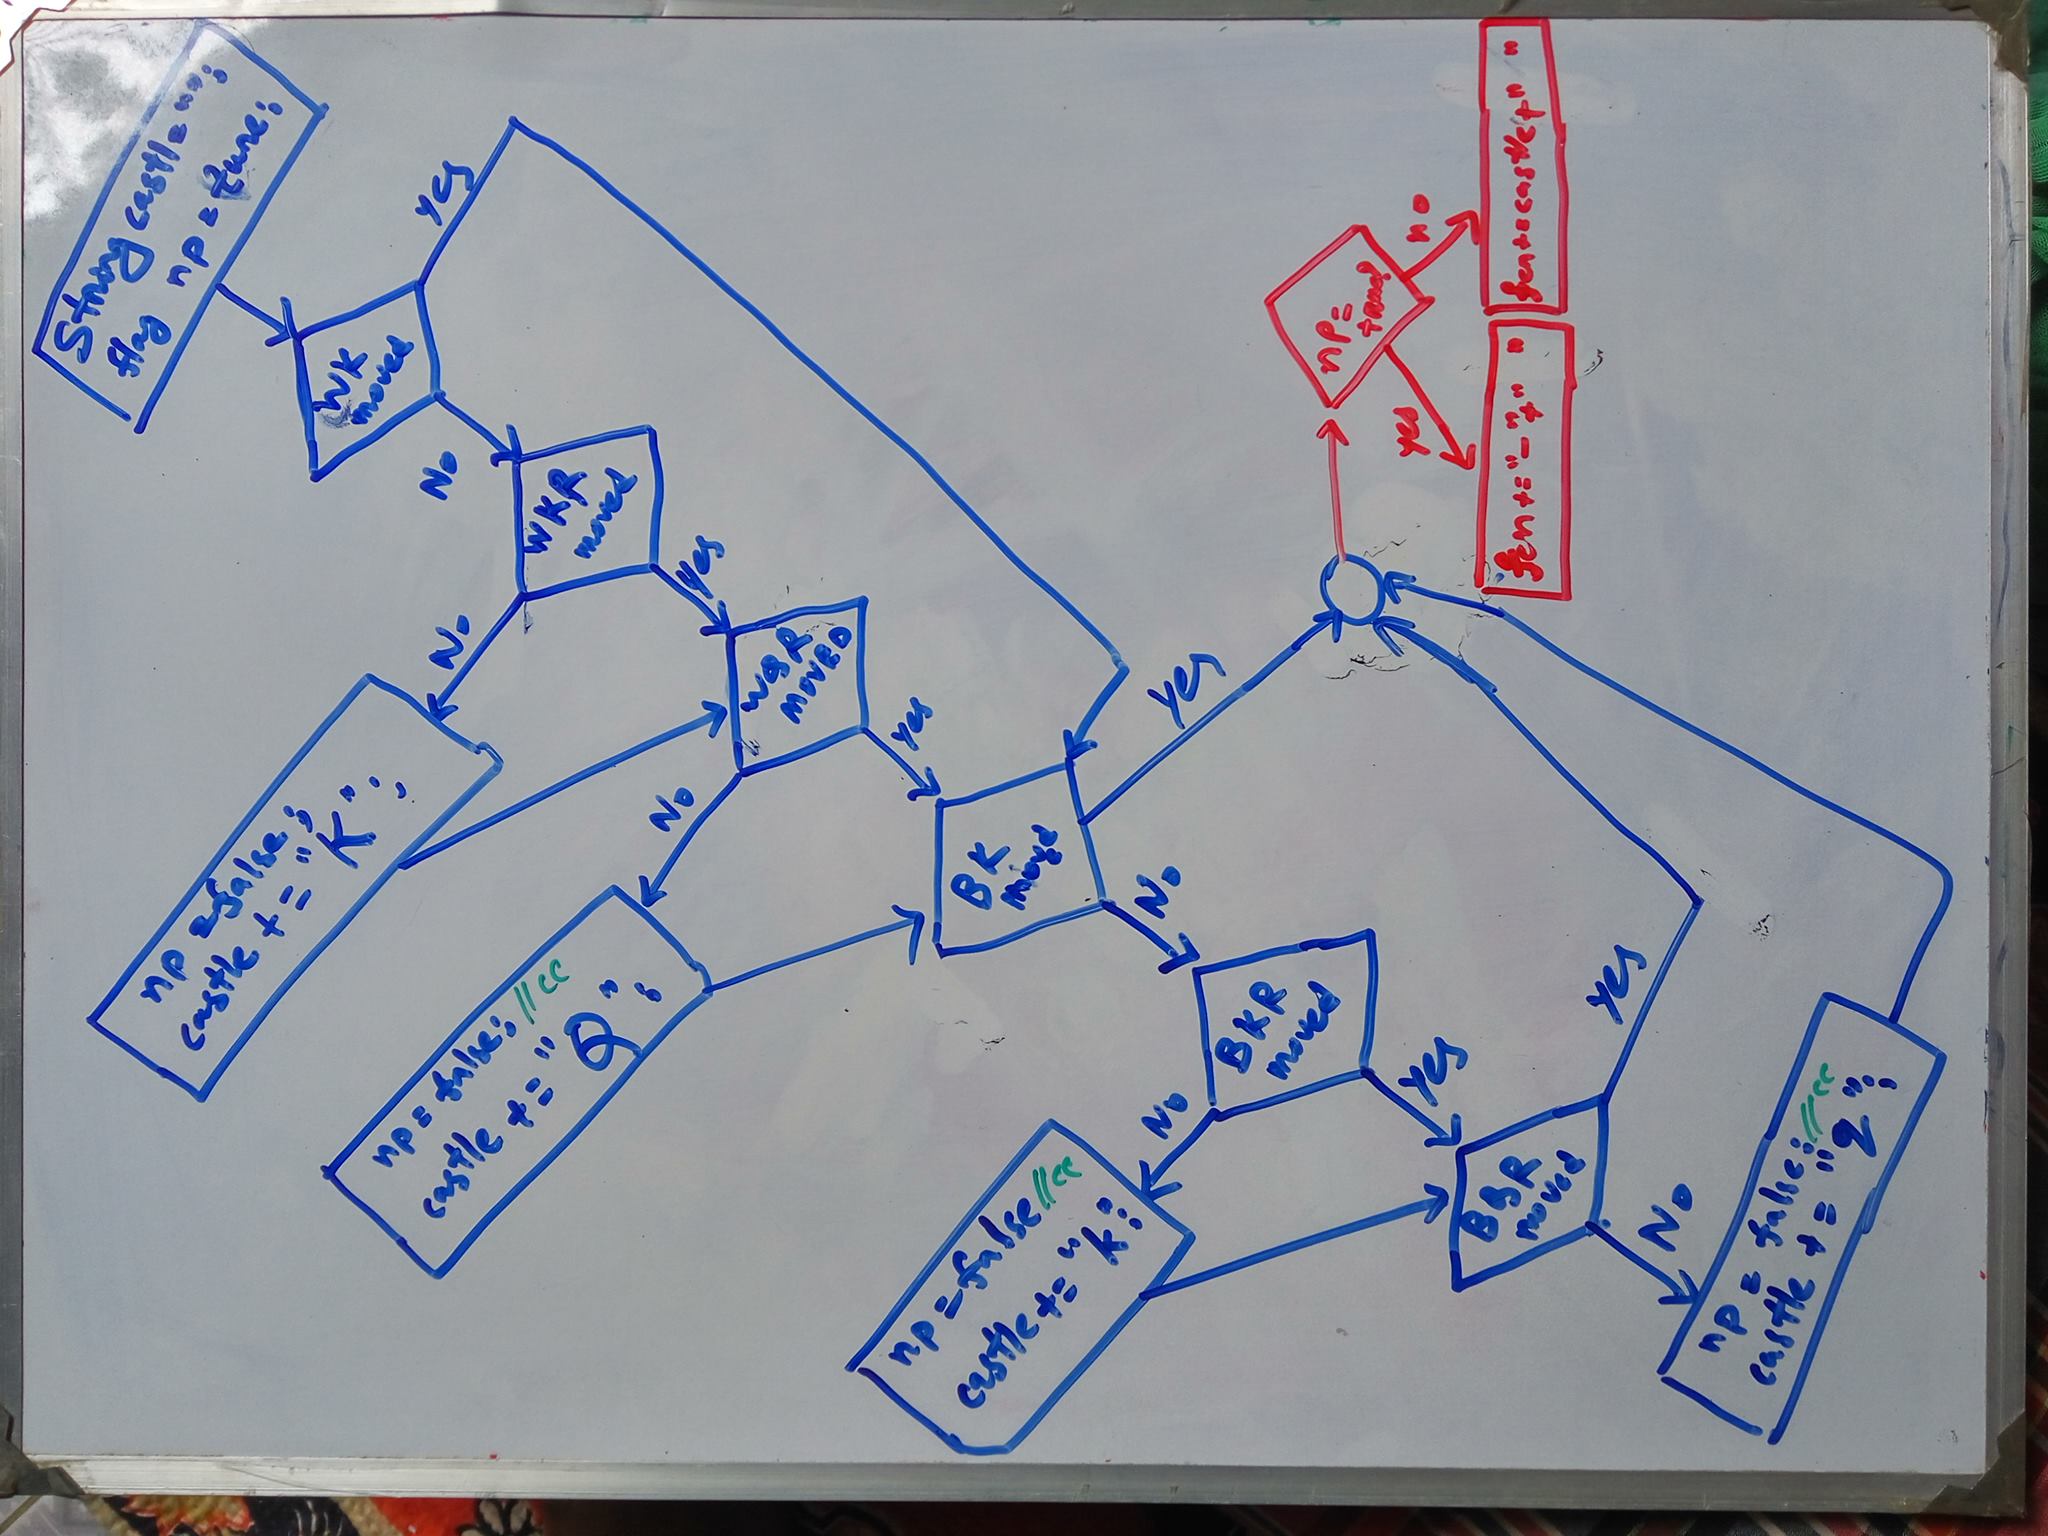 String castle = "";
flag np = true;
Yes
WK
moved
No
WKR
moved
Yes
No
np = false;
castle += "K";
WQR
MOVED
Yes
No
np = false; //cc
castle += "Q";
BK
moved
Yes
No
BKR
moved
Yes
No
np = false //cc
castle += "k";
BQR
moved
Yes
No
np = false; //cc
castle += "q";
np =
true?
no
yes
fen += castle + " "
fen += "-" + " "